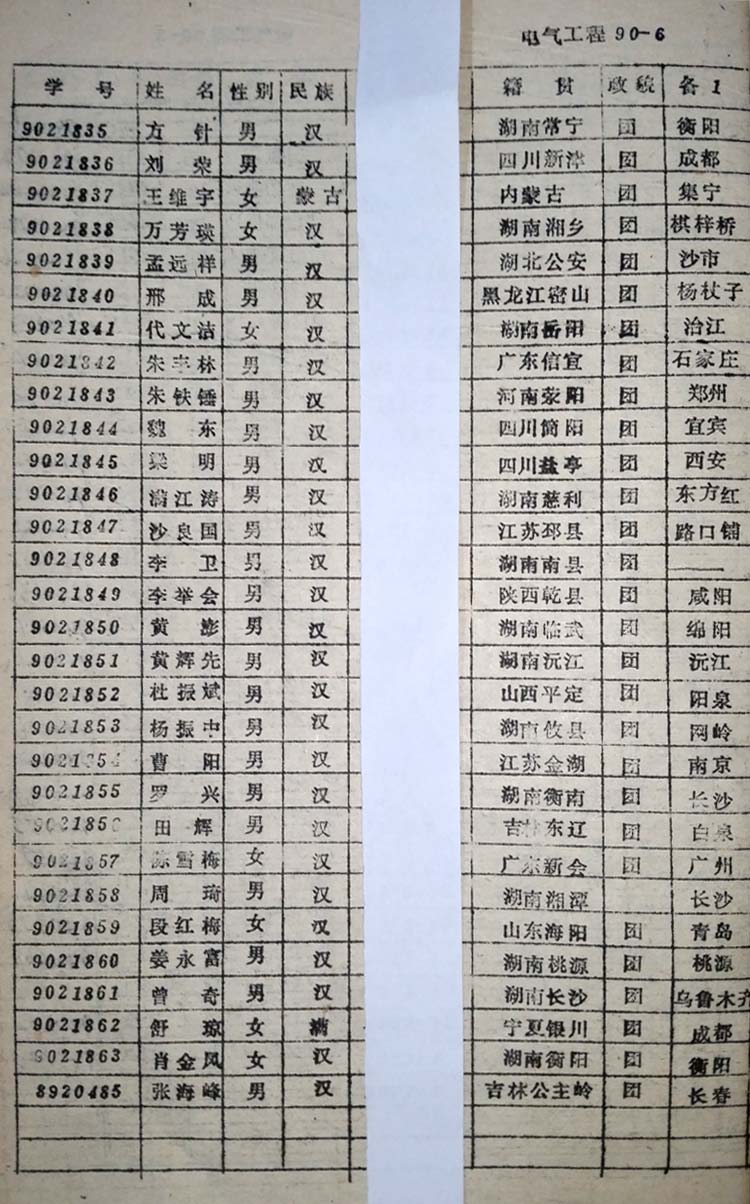 电气工程90-6
学号 姓名 性别 民族 籍贯 政貌 备1
9021835 方针 男 汉 湖南常宁 团 衡阳
9021836 刘荣 男 汉 四川新津 团 成都
9021837 王维宇 女 蒙古 内蒙古 团 集宁
9021838 万芳瑛 女 汉 湖南湘乡 团 棋梓桥
9021839 孟远祥 男 汉 湖北公安 团 沙市
9021840 邢成 男 汉 黑龙江密山 团 杨杖子
9021841 代文洁 女 汉 湖南岳阳 团 治江
9021842 朱丰林 男 汉 广东信宜 团 石家庄
9021843 朱铁锤 男 汉 河南荥阳 团 郑州
9021844 魏东 男 汉 四川简阳 团 宜宾
9021845 梁明 男 汉 四川盐亭 团 西安
9021846 满江涛 男 汉 湖南慈利 团 东方红
9021847 沙良国 男 汉 江苏邳县 团 路口铺
9021848 李卫 男 汉 湖南南县 团 ——
9021849 李举会 男 汉 陕西乾县 团 咸阳
9021850 黄澎 男 汉 湖南临武 团 绵阳
9021851 黄辉先 男 汉 湖南沅江 团 沅江
9021852 杜振斌 男 汉 山西平定 团 阳泉
9021853 杨振中 男 汉 湖南攸县 团 网岭
9021854 曹阳 男 汉 江苏金湖 团 南京
9021855 罗兴 男 汉 湖南衡南 团 长沙
9021856 田辉 男 汉 吉林东辽 团 白泉
9021857 陈雪梅 女 汉 广东新会 团 广州
9021858 周琦 男 汉 湖南湘潭 长沙
9021859 段红梅 女 汉 山东海阳 团 青岛
9021860 姜永富 男 汉 湖南桃源 团 桃源
9021861 曾奇 男 汉 湖南长沙 团 乌鲁木齐
9021862 舒琼 女 满 宁夏银川 团 成都
9021863 肖金凤 女 汉 湖南衡阳 团 衡阳
8920485 张海峰 男 汉 吉林公主岭 团 长春